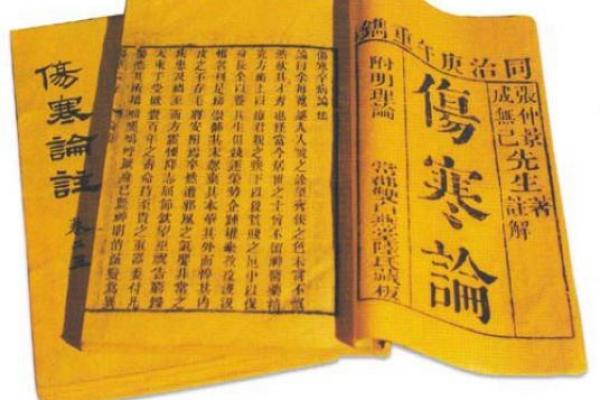 同治庚午重鐫
張仲景
成無己
先生
著
註解
傷寒論
附明理論
常郡雙白燕堂陸氏藏板
傷寒卒病論集
論曰余每覽越人入虢之診望齊侯之色未嘗不慨
然歎其才秀也怪當今居世之士曾不留神醫藥精
究方術上以療君親之疾下以救貧賤之厄中以保
身長全以養其生但競逐榮勢企踵權豪孜孜汲汲
惟名利是務崇飾其末忽棄其本華其外而悴其內
皮之不存毛將安附焉卒然遭邪風之氣嬰非常之
疾患及禍至而方震慄降志屈節欽望巫祝告窮歸
天束手受敗賫百年之壽命持至貴之重器委付凡
醫恣其所措咄嗟嗚呼厥身已斃神明消滅變為異
傷寒論註
卷二三